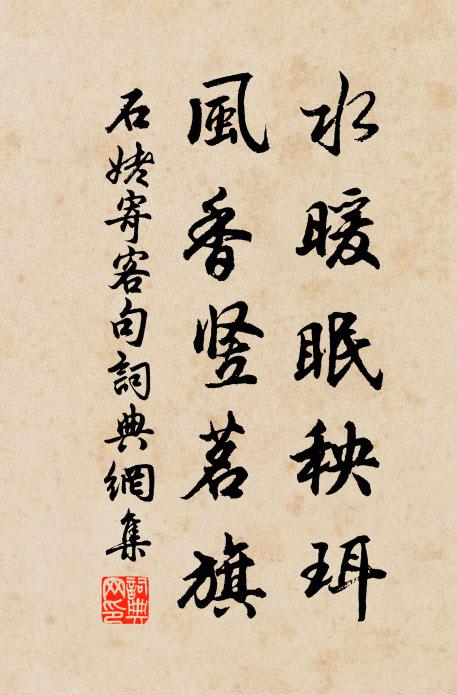 水暖眠秧珥
風香竖茗旗
石姥寄客句詞典網集
詞典網印